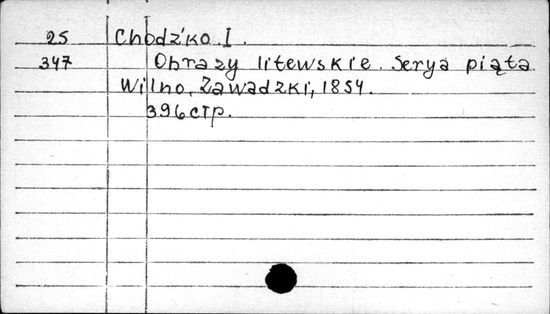 25 Chodźko I.
347 Obrazy litewskie. Serya piąta
Wilno, Zawadzki, 1854.
396 стр.